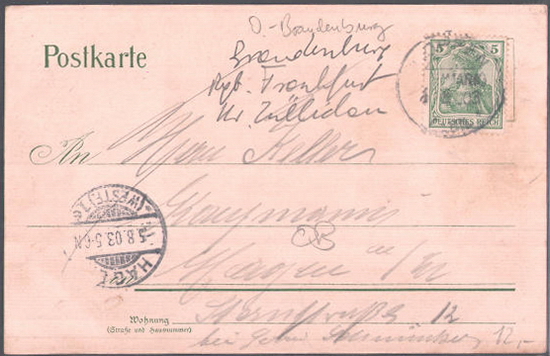 O-Brandenburg
Postkarte
Brandenburg
Rgb. Frankfurt
Kr. Züllichau
5 5
DEUTSCHES REICH
An Herrn Keller
Kaufmann
CB
Hagen i/W
(WESTF.)
8.03.5-6N
HAGEN
Wohnung
(Straße und Hausnummer)
12
bei
12,-